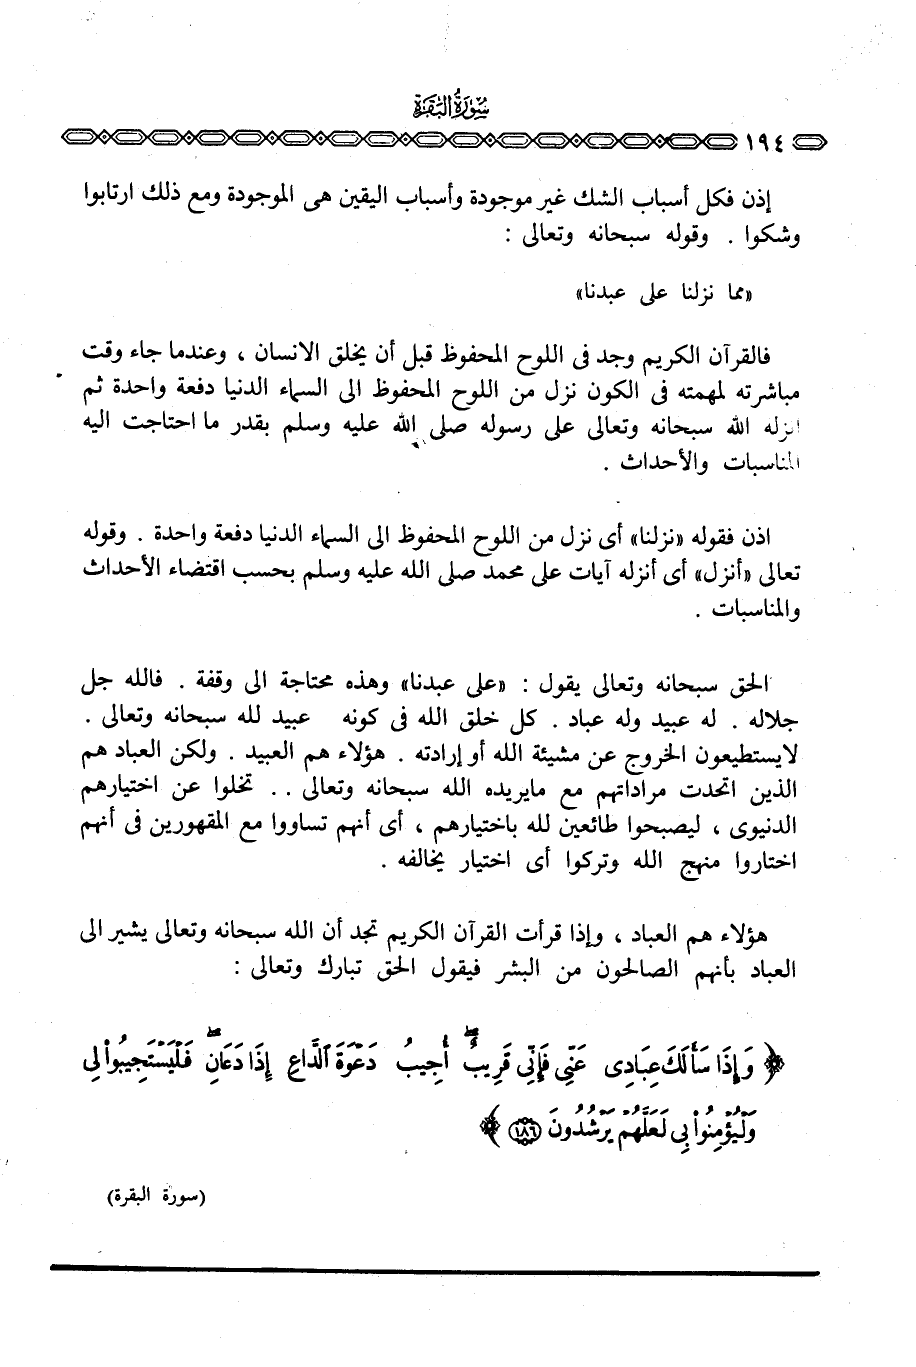 سُورَةُ الْبَقَرَةِ
١٩٤
إذن فكل أسباب الشك غير موجودة وأسباب اليقين هى الموجودة ومع ذلك ارتابوا
وشكوا . وقوله سبحانه وتعالى :
«مما نزلنا على عبدنا»
فالقرآن الكريم وجد فى اللوح المحفوظ قبل أن يخلق الانسان ، وعندما جاء وقت
مباشرته لمهمته فى الكون نزل من اللوح المحفوظ الى السماء الدنيا دفعة واحدة ثم
انزله الله سبحانه وتعالى على رسوله صلى الله عليه وسلم بقدر ما احتاجت اليه
المناسبات والأحداث .
اذن فقوله «نزلنا» أى نزل من اللوح المحفوظ الى السماء الدنيا دفعة واحدة . وقوله
تعالى «أنزل» أى أنزله آيات على محمد صلى الله عليه وسلم بحسب اقتضاء الأحداث
والمناسبات .
الحق سبحانه وتعالى يقول : «على عبدنا» وهذه محتاجة الى وقفة . فالله جل
جلاله . له عبيد وله عباد . كل خلق الله فى كونه عبيد لله سبحانه وتعالى .
لايستطيعون الخروج عن مشيئة الله أو إرادته . هؤلاء هم العبيد . ولكن العباد هم
الذين اتحدت مراداتهم مع مايريده الله سبحانه وتعالى .. تخلوا عن اختيارهم
الدنيوى ، ليصبحوا طائعين لله باختيارهم ، أى أنهم تساووا مع المقهورين فى أنهم
اختاروا منهج الله وتركوا أى اختيار يخالفه .
هؤلاء هم العباد ، وإذا قرأت القرآن الكريم تجد أن الله سبحانه وتعالى يشير الى
العباد بأنهم الصالحون من البشر فيقول الحق تبارك وتعالى :
﴿ وَإِذَا سَأَلَكَ عِبَادِى عَنِّى فَإِنِّى قَرِيبٌ ۖ أُجِيبُ دَعْوَةَ ٱلدَّاعِ إِذَا دَعَانِ ۖ فَلْيَسْتَجِيبُوا۟ لِى
وَلْيُؤْمِنُوا۟ بِى لَعَلَّهُمْ يَرْشُدُونَ ١٨٦ ﴾
(سورة البقرة)